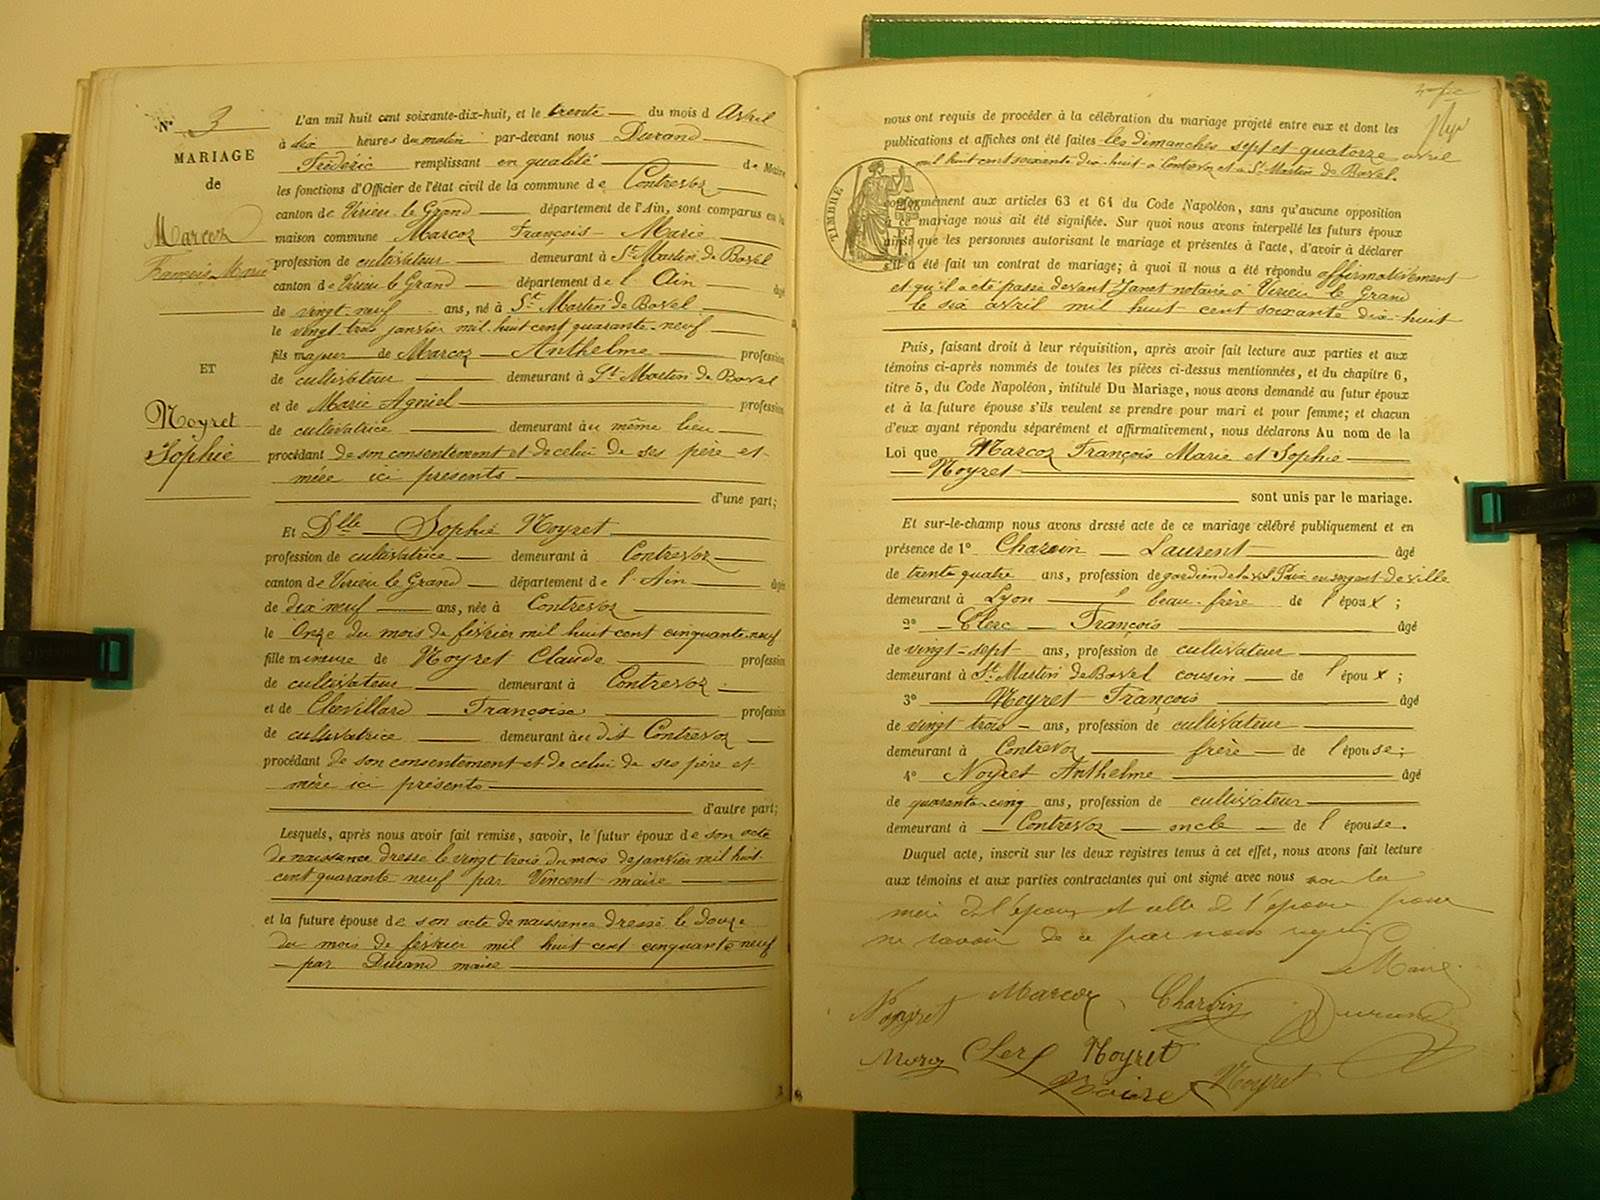 N° 3
MARIAGE
de
Marcoz
François Marie
ET
Noyret
Sophie
L'an mil huit cent soixante-dix-huit, et le trente du mois d Avril
à dix heures du matin par-devant nous Durand
Frédéric remplissant en qualité de Maire
les fonctions d'Officier de l'état civil de la commune de Contrevoz
canton de Virieu le Grand département de l'Ain, sont comparus en la
maison commune Marcoz François Marie
profession de cultivateur demeurant à St Martin de Bavel
canton de Virieu le Grand département de l'Ain âgé
de vingt-neuf ans, né à St Martin de Bavel
le vingt trois janvier mil huit cent quarante-neuf
fils majeur de Marcoz Anthelme profession
de cultivateur demeurant à St Martin de Bavel
et de Marie Agniel profession
de cultivatrice demeurant au même lieu
procédant de son consentement et de celui de ses père et
mère ici présents
d'une part;
Et Dlle Sophie Noyret
profession de cultivatrice demeurant à Contrevoz
canton de Virieu le Grand département de l'Ain âgée
de dix neuf ans, née à Contrevoz
le Onze du mois de février mil huit cent cinquante-neuf
fille mineure de Noyret Claude profession
de cultivateur demeurant à Contrevoz
et de Chevillard Françoise profession
de cultivatrice demeurant au dit Contrevoz
procédant de son consentement et de celui de ses père et
mère ici présents
d'autre part;
Lesquels, après nous avoir fait remise, savoir, le futur époux de son acte
de naissance dressé le vingt trois du mois de janvier mil huit
cent quarante neuf par Vincent maire
et la future épouse de son acte de naissance dressé le douze
du mois de février mil huit cent cinquante neuf
par Durand maire
nous ont requis de procéder à la célébration du mariage projeté entre eux et dont les
publications et affiches ont été faites les dimanches sept et quatorze avril
mil huit cent soixante dix huit à Contrevoz et à St Martin de Bavel.
TIMBRE
conformément aux articles 63 et 64 du Code Napoléon, sans qu'aucune opposition
à ce mariage nous ait été signifiée. Sur quoi nous avons interpellé les futurs époux
ainsi que les personnes autorisant le mariage et présentes à l'acte, d'avoir à déclarer
s'il a été fait un contrat de mariage; à quoi il nous a été répondu affirmativement
et qu'il a été passé devant Janet notaire à Virieu le Grand
le six avril mil huit cent soixante dix-huit
Puis, faisant droit à leur réquisition, après avoir fait lecture aux parties et aux
témoins ci-après nommés de toutes les pièces ci-dessus mentionnées, et du chapitre 6,
titre 5, du Code Napoléon, intitulé Du Mariage, nous avons demandé au futur époux
et à la future épouse s'ils veulent se prendre pour mari et pour femme; et chacun
d'eux ayant répondu séparément et affirmativement, nous déclarons Au nom de la
Loi que Marcoz François Marie et Sophie
Noyret
sont unis par le mariage.
Et sur-le-champ nous avons dressé acte de ce mariage célébré publiquement et en
présence de 1° Charvin Laurent âgé
de trente quatre ans, profession de gardien de la Paix en sergent de ville
demeurant à Lyon beau-frère de l'époux;
2° Clerc François âgé
de vingt-sept ans, profession de cultivateur
demeurant à St Martin de Bavel cousin de l'époux;
3° Noyret François âgé
de vingt trois ans, profession de cultivateur
demeurant à Contrevoz frère de l'épouse;
4° Noyret Anthelme âgé
de quarante-cinq ans, profession de cultivateur
demeurant à Contrevoz oncle de l'épouse.
Duquel acte, inscrit sur les deux registres tenus à cet effet, nous avons fait lecture
aux témoins et aux parties contractantes qui ont signé avec nous non la
mère de l'époux et celle de l'épouse pour
ne savoir de ce par nous requis
Le Maire
Noyret Marcoz Charvin Durand
Clerc Noyret
Noyret